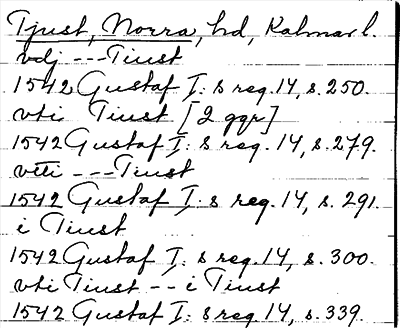 Tjust, Norra, hd, Kalmar l.
vdj --- Tiust
1542 Gustaf I: s reg. 14, s. 250.
vti Tiust [2 ggr]
1542 Gustaf I: s reg. 14, s. 279.
vtti --- Tiust
1542 Gustaf I: s reg. 14, s. 291.
i Tiust
1542 Gustaf I: s reg. 14, s. 300.
vti Tiust -- i Tiust
1542 Gustaf I: s reg. 14, s. 339.